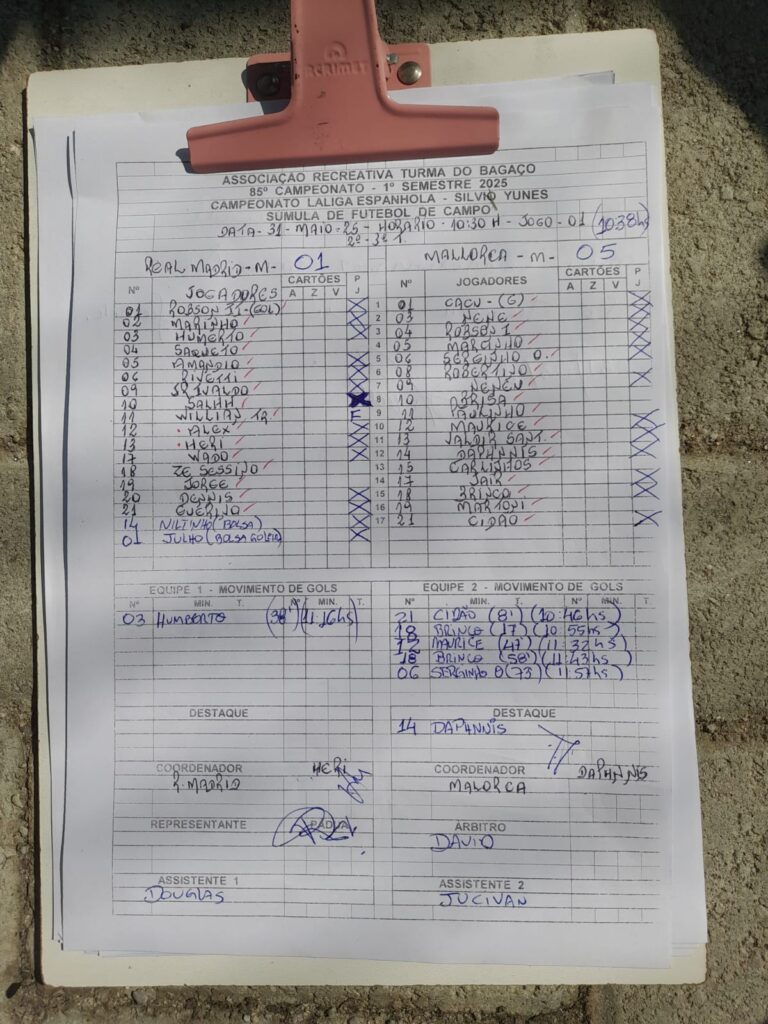 ACRIMET
ASSOCIAÇÃO RECREATIVA TURMA DO BAGAÇO
85º CAMPEONATO - 1º SEMESTRE 2025
CAMPEONATO LALIGA ESPANHOLA - SILVIO YUNES
SÚMULA DE FUTEBOL DE CAMPO
DATA - 31 - MAIO - 25 - HORARIO - 10:30 H - JOGO - 01 (10:38hs)
2º - 3ª T
REAL MADRID - M - 01
CARTÕES P J
Nº JOGADORES A Z V
01 ROBSON JJ - (GOL)
02 MARINHO
03 HUMERTO
04 SAQUETO
05 AMANDIO
06 RIVETTI
09 SRIVALDO
10 SALHH
11 WILLIAN TR F
12 ALEX
13 HERI
17 WADO
18 ZE SESSINO
19 JORGE
20 DENNIS
21 GUERINO
14 NILTINHO (BOLSA)
01 JULHO (BOLSA GOLEIRO)
MALLORCA - M - 05
CARTÕES P J
Nº JOGADORES A Z V
1 01 CACU - (G)
2 03 NENE
3 04 ROBSON I
4 05 MARCINHO
5 06 SERGINHO O.
6 08 ROBERTINO
7 09 NENEU
8 10 BRISA
9 11 PAULINHO
10 12 MAURICE
11 13 VALDIR SANT.
12 14 DAPHNNIS
13 15 CARLINHOS
14 17 JAIR
15 18 BRINCO
16 19 MARTONI
17 21 CIDÃO
EQUIPE 1 - MOVIMENTO DE GOLS
Nº MIN. T. Nº MIN. T.
03 HUMBERTO (38') (11:16hs)
EQUIPE 2 - MOVIMENTO DE GOLS
Nº MIN. T. Nº MIN. T.
21 CIDÃO (8') (10:46hs)
18 BRINCO (17) (10:55hs)
12 MAURICE (47') (11:32hs)
18 BRINCO (58') (11:43hs)
06 SERGINHO O (73) (11:57hs)
DESTAQUE
DESTAQUE
14 DAPHNNIS
COORDENADOR HERI
R. MADRID
COORDENADOR DAPHNNIS
MALORCA
REPRESENTANTE PADUA
ÁRBITRO
DAVID
ASSISTENTE 1
DOUGLAS
ASSISTENTE 2
JUCIVAN